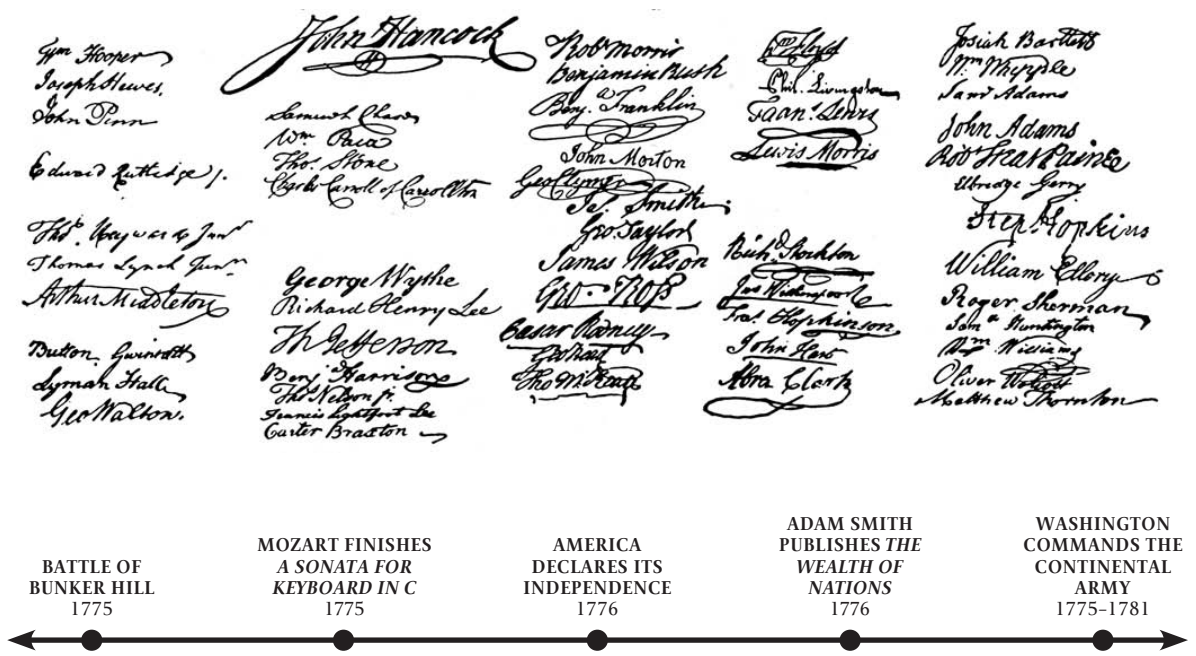 Wm Hooper
Joseph Hewes,
John Penn
Edward Rutledge /.
Thos. Heyward Junr
Thomas Lynch Junr
Arthur Middleton
Button Gwinnett
Lyman Hall
Geo Walton.
John Hancock
Samuel Chase
Wm Paca
Thos. Stone
Charles Carroll of Carrollton
George Wythe
Richard Henry Lee
Th Jefferson
Benj Harrison
Thos Nelson jr.
Francis Lightfoot Lee
Carter Braxton
Robt Morris
Benjamin Rush
Benja. Franklin
John Morton
Geo Clymer
Jas. Smith
Geo. Taylor
James Wilson
Geo. Ross
Caesar Rodney
Geo Read
Tho M:Kean
Wm Floyd
Phil. Livingston
Frans. Lewis
Lewis Morris
Richd. Stockton
Jno Witherspoon
Fras. Hopkinson
John Hart
Abra Clark
Josiah Bartlett
Wm. Whipple
Saml Adams
John Adams
Robt Treat Paine
Elbridge Gerry
Step. Hopkins
William Ellery
Roger Sherman
Saml Huntington
Wm Williams
Oliver Wolcott
Matthew Thornton
BATTLE OF
BUNKER HILL
1775
MOZART FINISHES
A SONATA FOR
KEYBOARD IN C
1775
AMERICA
DECLARES ITS
INDEPENDENCE
1776
ADAM SMITH
PUBLISHES THE
WEALTH OF
NATIONS
1776
WASHINGTON
COMMANDS THE
CONTINENTAL
ARMY
1775–1781